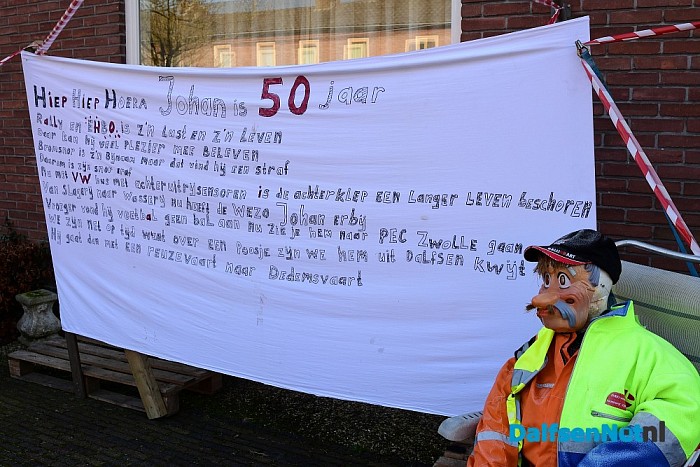 HIEP HIEP HOERA Johan is 50 jaar
Rally en EHBO is z'n Lust en z'n Leven
Daar kan hij veel plezier mee beleven
Bromsnor is z'n bijnaam maar dat vind hij een straf
Daarom is zijn snor eraf
Nu met VW bus met achteruitrijsensoren is de achterklep een langer leven beschoren
Van Slagerij naar Wasserij nu heeft de Wezo Johan erbij
Vroeger vond hij voetbal geen bal aan nu zie je hem naar PEC Zwolle gaan
We zijn net op tijd want over een poesje zijn we hem uit Dalfsen kwijt
Hij gaat dan met een reuzevaart naar Dedemsvaart
DalfsenNet.nl